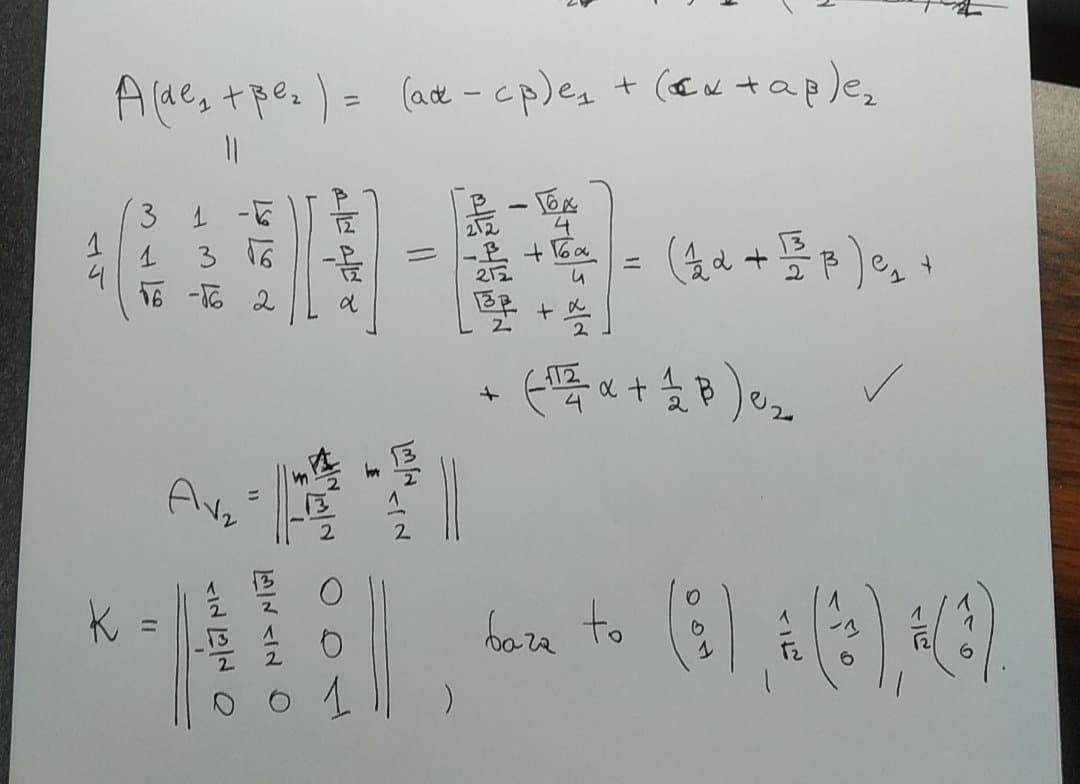 A(αe₁ + βe₂) = (aα - cβ)e₁ + (cα + aβ)e₂
||
1/4 (3 1 -√6; 1 3 √6; √6 -√6 2) [β/√2; -β/√2; α] = [β/2√2 - √6α/4; -β/2√2 + √6α/4; √3β/2 + α/2] = (1/2 α + √3/2 β)e₁ +
+ (-√12/4 α + 1/2 β)e₂ ✓
A_V₂ = ||1/2 √3/2; -√3/2 1/2||
K = ||1/2 √3/2 0; -√3/2 1/2 0; 0 0 1||, baza to (0; 0; 1), 1/√2 (1; -1; 0), 1/√2 (1; 1; 0).